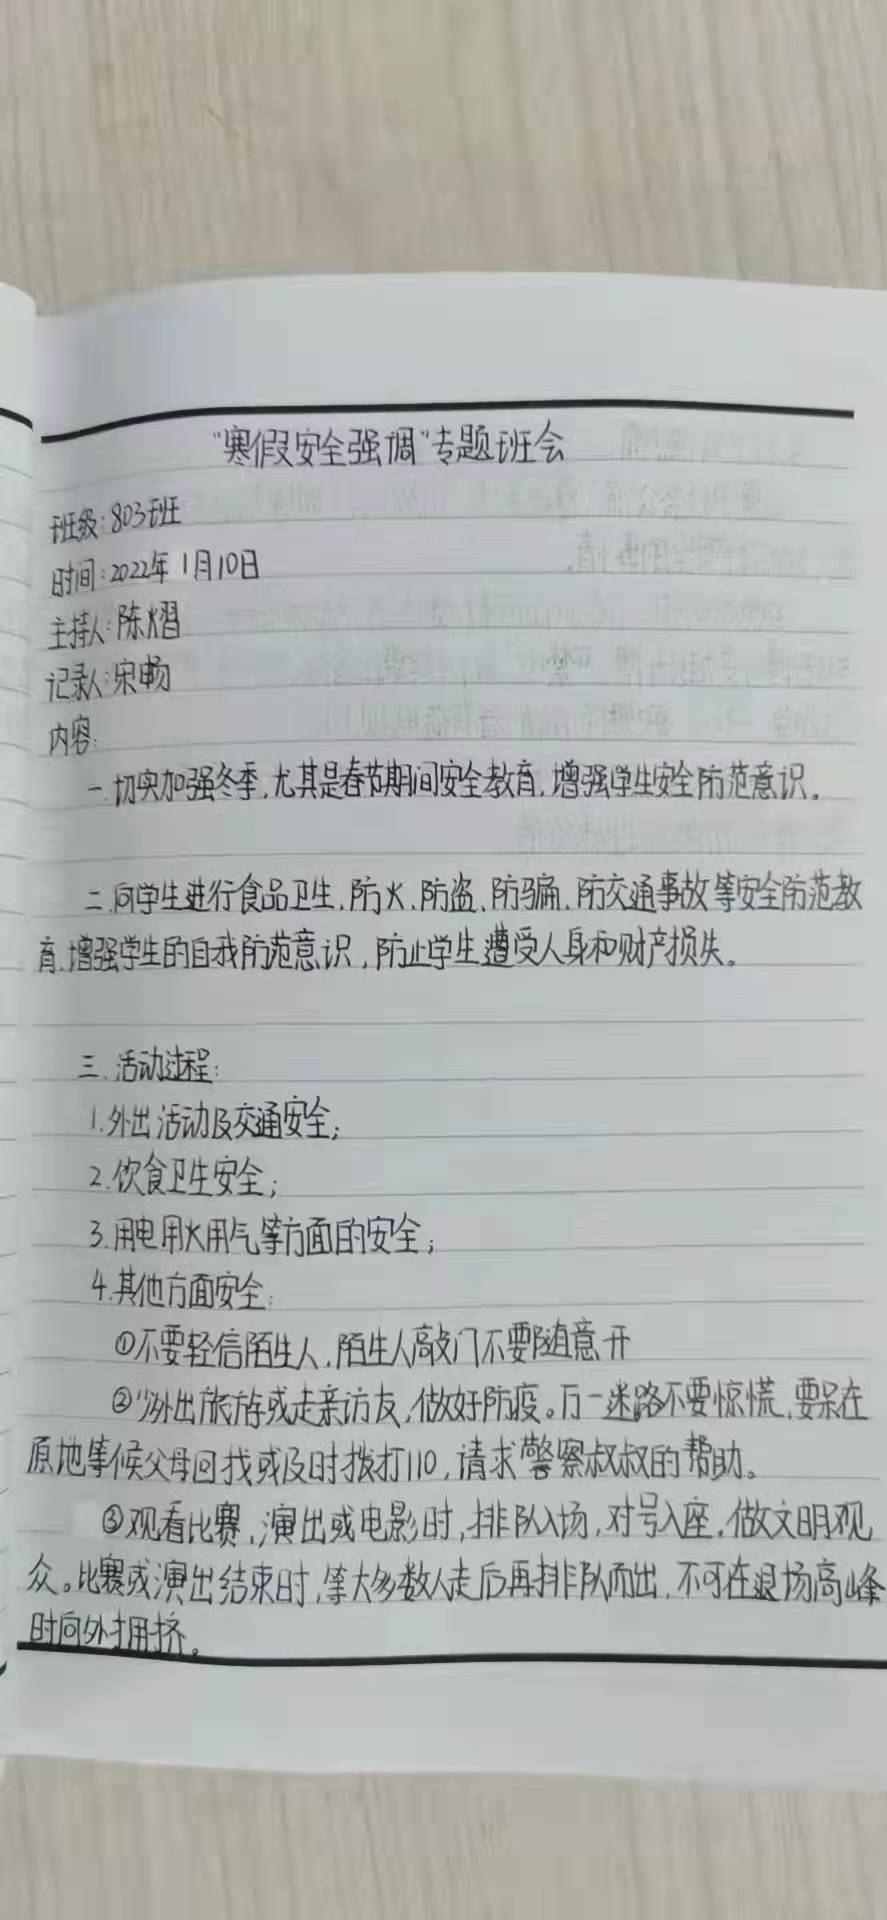 “寒假安全强调”专题班会
班级:803班
时间:2022年1月10日
主持人:陈熠
记录人:宋畅
内容:
一.切实加强冬季,尤其是春节期间安全教育,增强学生安全防范意识。
二.向学生进行食品卫生、防火、防盗、防骗、防交通事故等安全防范教
育,增强学生的自我防范意识,防止学生遭受人身和财产损失。
三.活动过程:
1.外出活动及交通安全;
2.饮食卫生安全;
3.用电用火用气等方面的安全;
4.其他方面安全:
①不要轻信陌生人,陌生人敲门不要随意开
②少外出旅游或走亲访友,做好防疫。万一迷路不要惊慌,要呆在
原地等候父母回找或及时拨打110,请求警察叔叔的帮助。
③观看比赛、演出或电影时,排队入场,对号入座,做文明观
众。比赛或演出结束时,等大多数人走后再排队而出,不可在退场高峰
时向外拥挤。